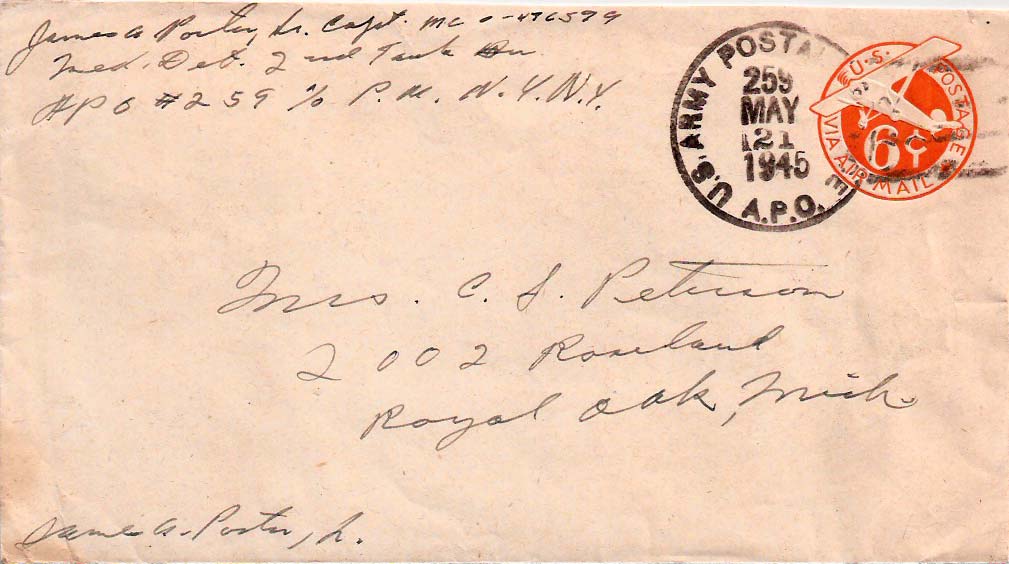 James A Porter, Jr. Capt. MC O-496599
Med. Det. 2nd Tank Bn
APO #259 c/o P.M. N.Y. N.Y.
U.S. ARMY POSTAL
259
MAY
21
1945
A.P.O.
U.S. POSTAGE
6¢
VIA AIR MAIL
Mrs. C. S. Peterson
2002 Roseland
Royal Oak, Mich.
James A. Porter, Jr.